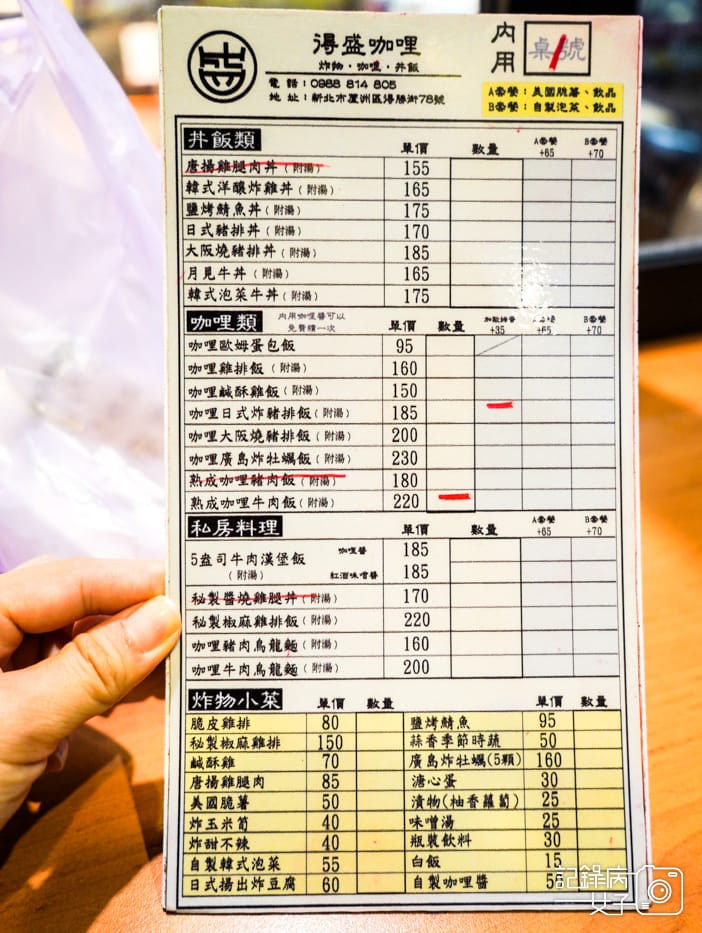 得盛咖哩
炸物・咖哩・丼飯
電話：0988 814 805
地址：新北市蘆洲區得勝街78號
內用
桌號
A套餐：美國脆薯、飲品
B套餐：自製泡菜、飲品
丼飯類 單價 數量 A套餐+65 B套餐+70
唐揚雞腿肉丼（附湯） 155
韓式洋釀炸雞丼（附湯） 165
鹽烤鯖魚丼（附湯） 175
日式豬排丼（附湯） 170
大阪燒豬排丼（附湯） 185
月見牛丼（附湯） 165
韓式泡菜牛丼（附湯） 175
咖哩類 內用咖哩醬可以免費續一次 單價 數量 加歐姆蛋+35 +65 B套餐+70
咖哩歐姆蛋包飯 95
咖哩雞排飯（附湯） 160
咖哩鹹酥雞飯（附湯） 150
咖哩日式炸豬排飯（附湯） 185
咖哩大阪燒豬排飯（附湯） 200
咖哩廣島炸牡蠣飯（附湯） 230
熟成咖哩豬肉飯（附湯） 180
熟成咖哩牛肉飯（附湯） 220
私房料理 單價 數量 A套餐+65 B套餐+70
5盎司牛肉漢堡飯（附湯） 咖哩醬 185
紅酒味噌醬 185
秘製醬燒雞腿丼（附湯） 170
秘製椒麻雞排飯（附湯） 220
咖哩豬肉烏龍麵（附湯） 160
咖哩牛肉烏龍麵（附湯） 200
炸物小菜 單價 數量 單價 數量
脆皮雞排 80 鹽烤鯖魚 95
秘製椒麻雞排 150 蒜香季節時蔬 50
鹹酥雞 70 廣島炸牡蠣(5顆) 160
唐揚雞腿肉 85 溏心蛋 30
美國脆薯 50 漬物(柚香蘿蔔) 25
炸玉米筍 40 味噌湯 25
炸甜不辣 40 瓶裝飲料 30
自製韓式泡菜 55 白飯 15
日式揚出炸豆腐 60 自製咖哩醬
記錄病女子